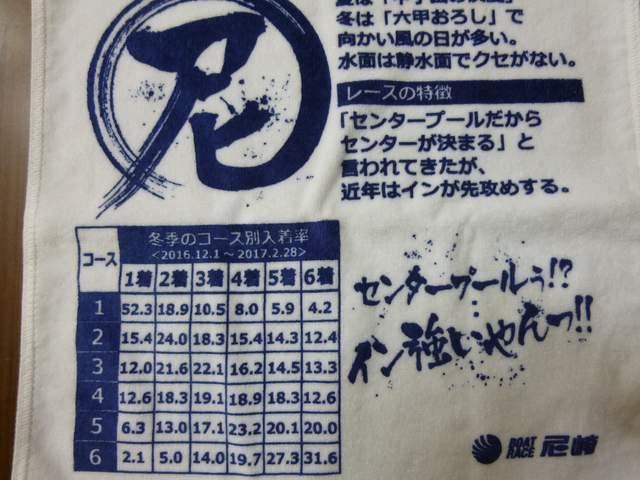 尼
冬は「六甲おろし」で
向かい風の日が多い。
水面は静水面でクセがない。
レースの特徴
「センタープールだから
センターが決まる」と
言われてきたが、
近年はインが先攻めする。
コース 冬季のコース別入着率
<2016.12.1～2017.2.28>
1着 2着 3着 4着 5着 6着
1 52.3 18.9 10.5 8.0 5.9 4.2
2 15.4 24.0 18.3 15.4 14.3 12.4
3 12.0 21.6 22.1 16.2 14.5 13.3
4 12.6 18.3 19.1 18.9 18.3 12.6
5 6.3 13.0 17.1 23.2 20.1 20.0
6 2.1 5.0 14.0 19.7 27.3 31.6
センタープールぅ!?
…
イン強いやんっ!!
BOAT RACE 尼崎